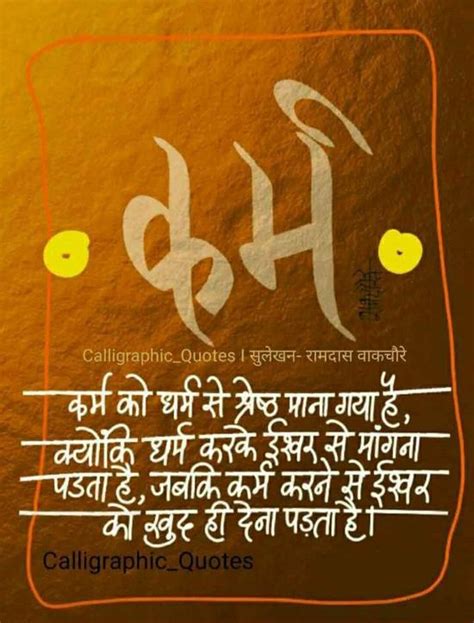 कर्म
Calligraphic_Quotes l सुलेखन- रामदास वाकचौरे
कर्म को धर्म से श्रेष्ठ माना गया है,
क्योंकि धर्म करके ईश्वर से मांगना
पडता है, जबकि कर्म करने से ईश्वर
को खुद ही देना पड़ता है।
Calligraphic_Quotes